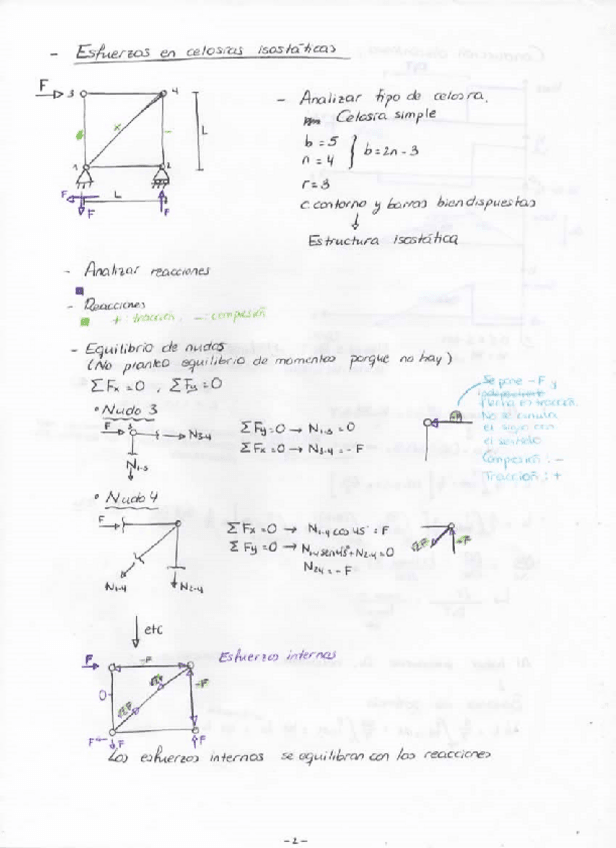 - Esfuerzos en celosías isostáticas
F
3
4
L
1
2
F
L
F
F
- Analizar tipo de celosía.
Celosía simple
b = 5
n = 4
b = 2n - 3
r = 3
c. contorno y barras bien dispuestas
↓
Estructura isostática
- Analizar reacciones
- Reacciones
+ : tracción, - : compresión
- Equilibrio de nudos
(No planteo equilibrio de momentos porque no hay)
ΣFx = 0 , ΣFy = 0
• Nudo 3
F
3
N3-4
N1-3
ΣFy = 0 → N1-3 = 0
ΣFx = 0 → N3-4 = - F
Se pone - F y
flecha es tracción.
No se cumula
el signo con
el sentido
Compresión : -
Tracción : +
• Nudo 4
F
N1-4
N2-4
ΣFx = 0 → N1-4 cos 45° = F
ΣFy = 0 → N1-4 sen 45° + N2-4 = 0
N2-4 = - F
√2F
-F
↓ etc
F
-F
0
√2F
√2F
-F
F
F
F
Esfuerzos internos
Los esfuerzos internos se equilibran con las reacciones
- 2 -